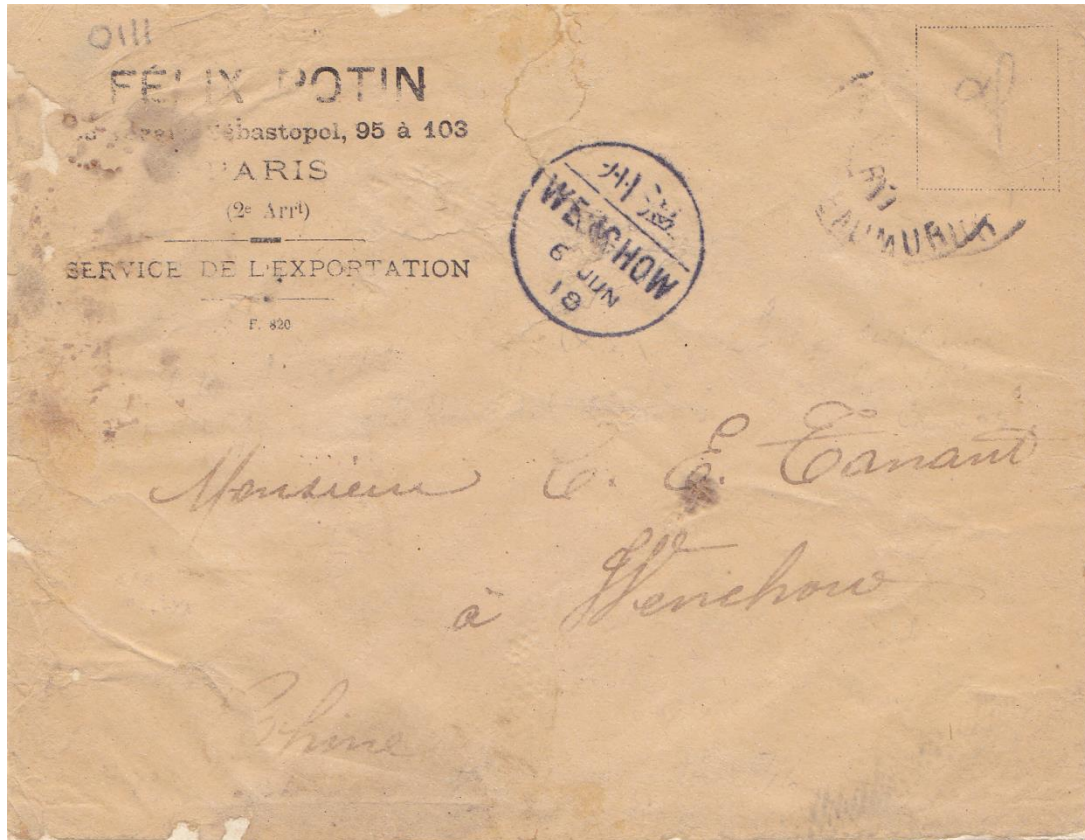 0111
FÉLIX POTIN
Sébastopol, 95 à 103
PARIS
(2e Arrt)
SERVICE DE L'EXPORTATION
F. 820
溫州
WENCHOW
6 JUN
18
Monsieur C. E. Tanant
à Wenchow
Chine